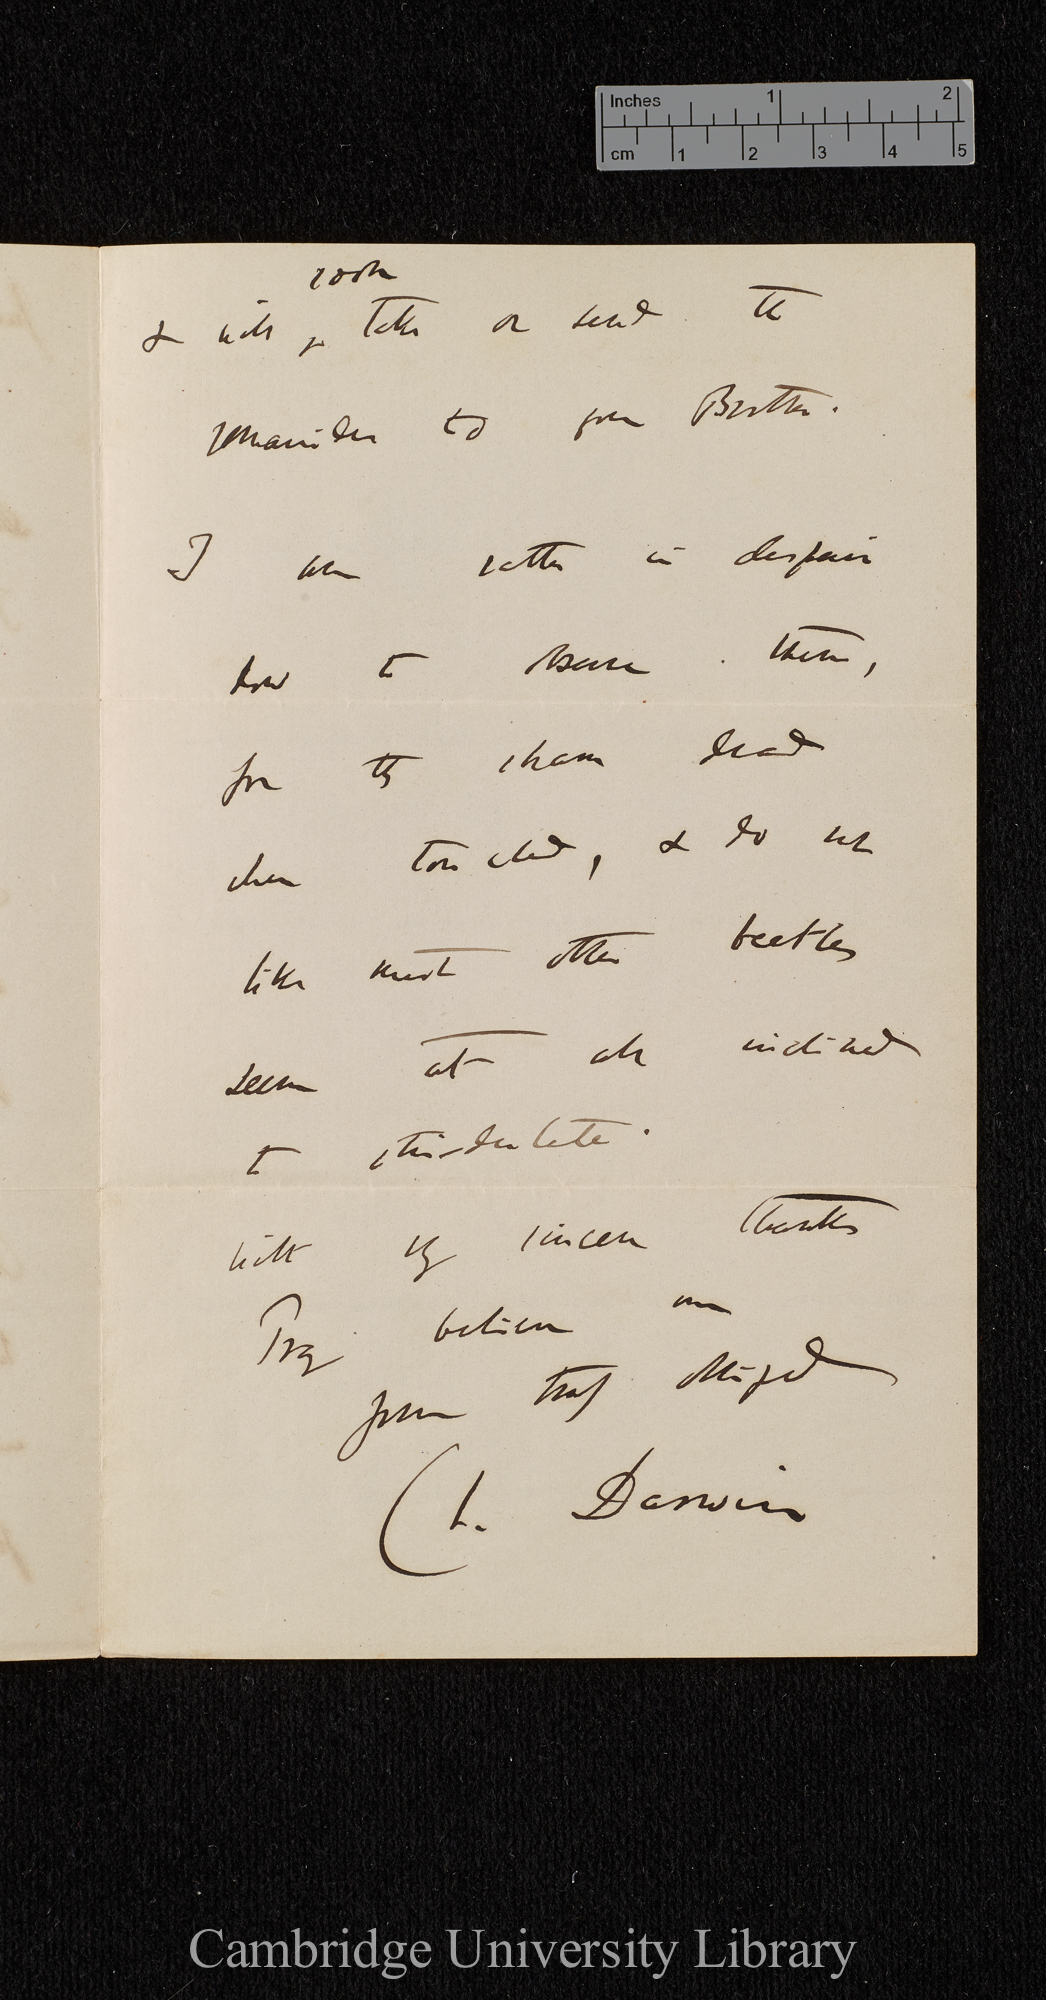 Inches 1 2
cm 1 2 3 4 5
soon
& will take or send the
remainder to your Brother.
I am rather in despair
how to observe them,
for they sham dead
when touched, & do not
like most other beetles
seem at all inclined
to stridulate.
With my sincere thanks
Pray believe me
yours truly obliged
Ch. Darwin
Cambridge University Library